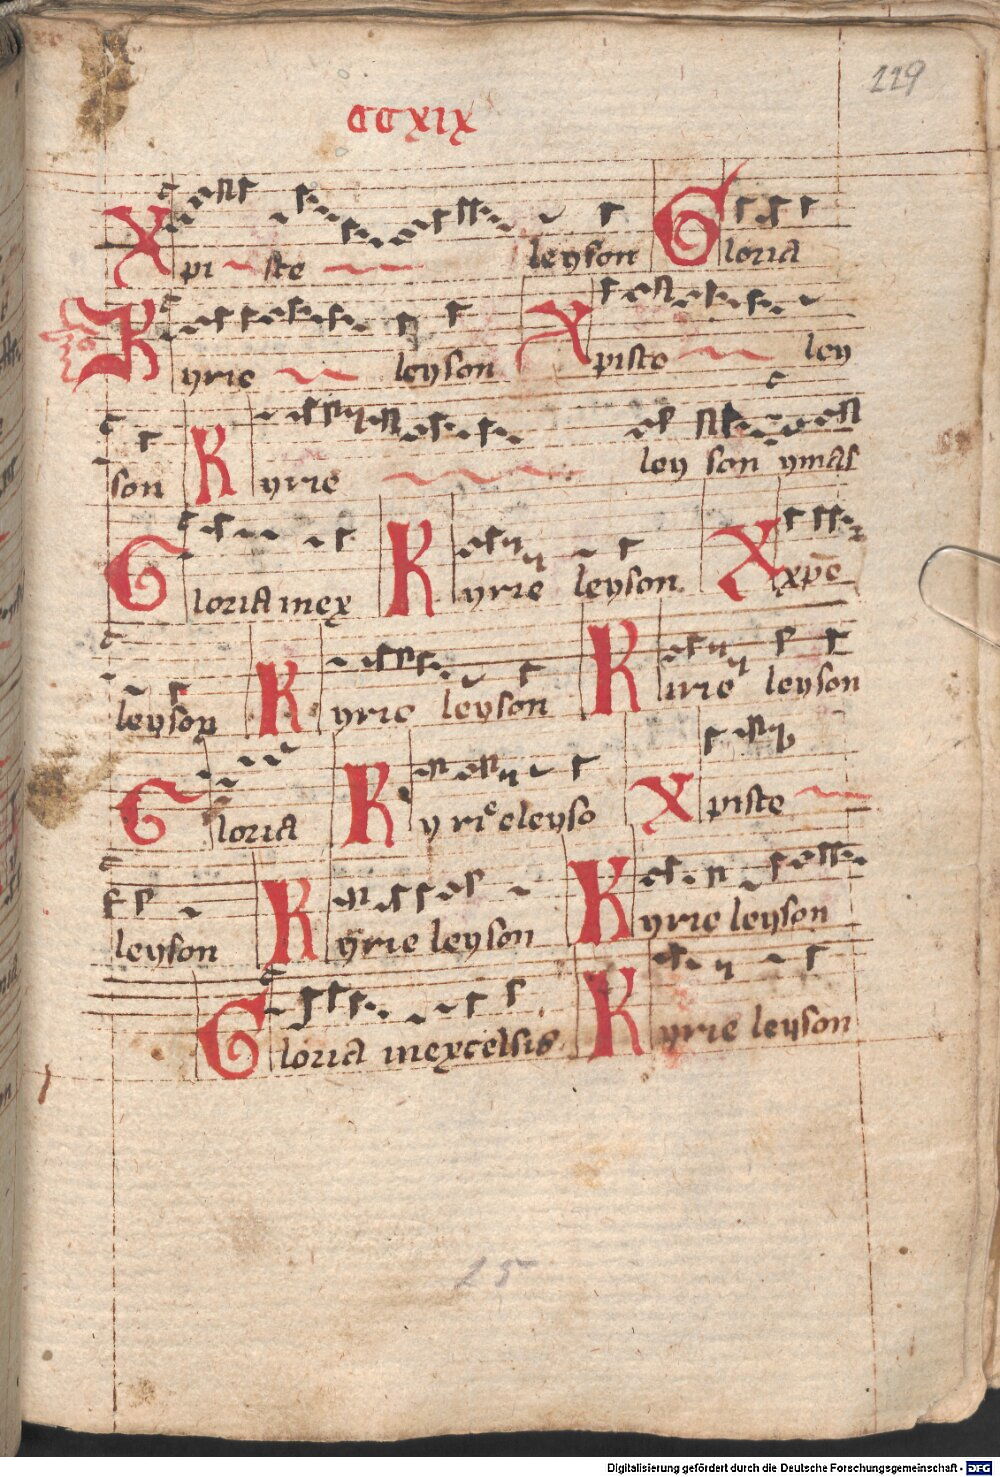 219
CCXIX
Xpiste leyson Gloria
Kyrie leyson Xpiste ley
son Kyrie leyson ymas
Gloria inex Kyrie leyson Xxpē
leyson Kyrie leyson Kirie leyson
Gloria Kyrie eleyso Xpiste
leyson Kyrie leyson Kyrie leyson
Gloria inexcelsis Kyrie leyson
25
Digitalisierung gefördert durch die Deutsche Forschungsgemeinschaft - DFG